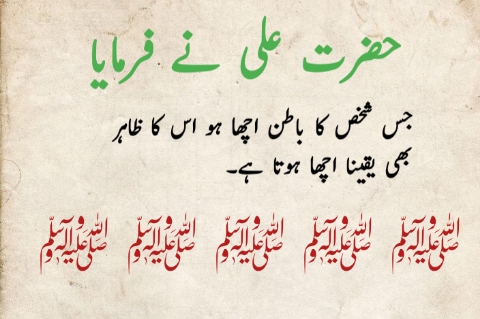 حضرت علی نے فرمایا
جس شخص کا باطن اچھا ہو اس کا ظاہر
بھی یقینا اچھا ہوتا ہے۔
صلی اللہ علیہ وآلہ وسلم صلی اللہ علیہ وآلہ وسلم صلی اللہ علیہ وآلہ وسلم صلی اللہ علیہ وآلہ وسلم صلی اللہ علیہ وآلہ وسلم